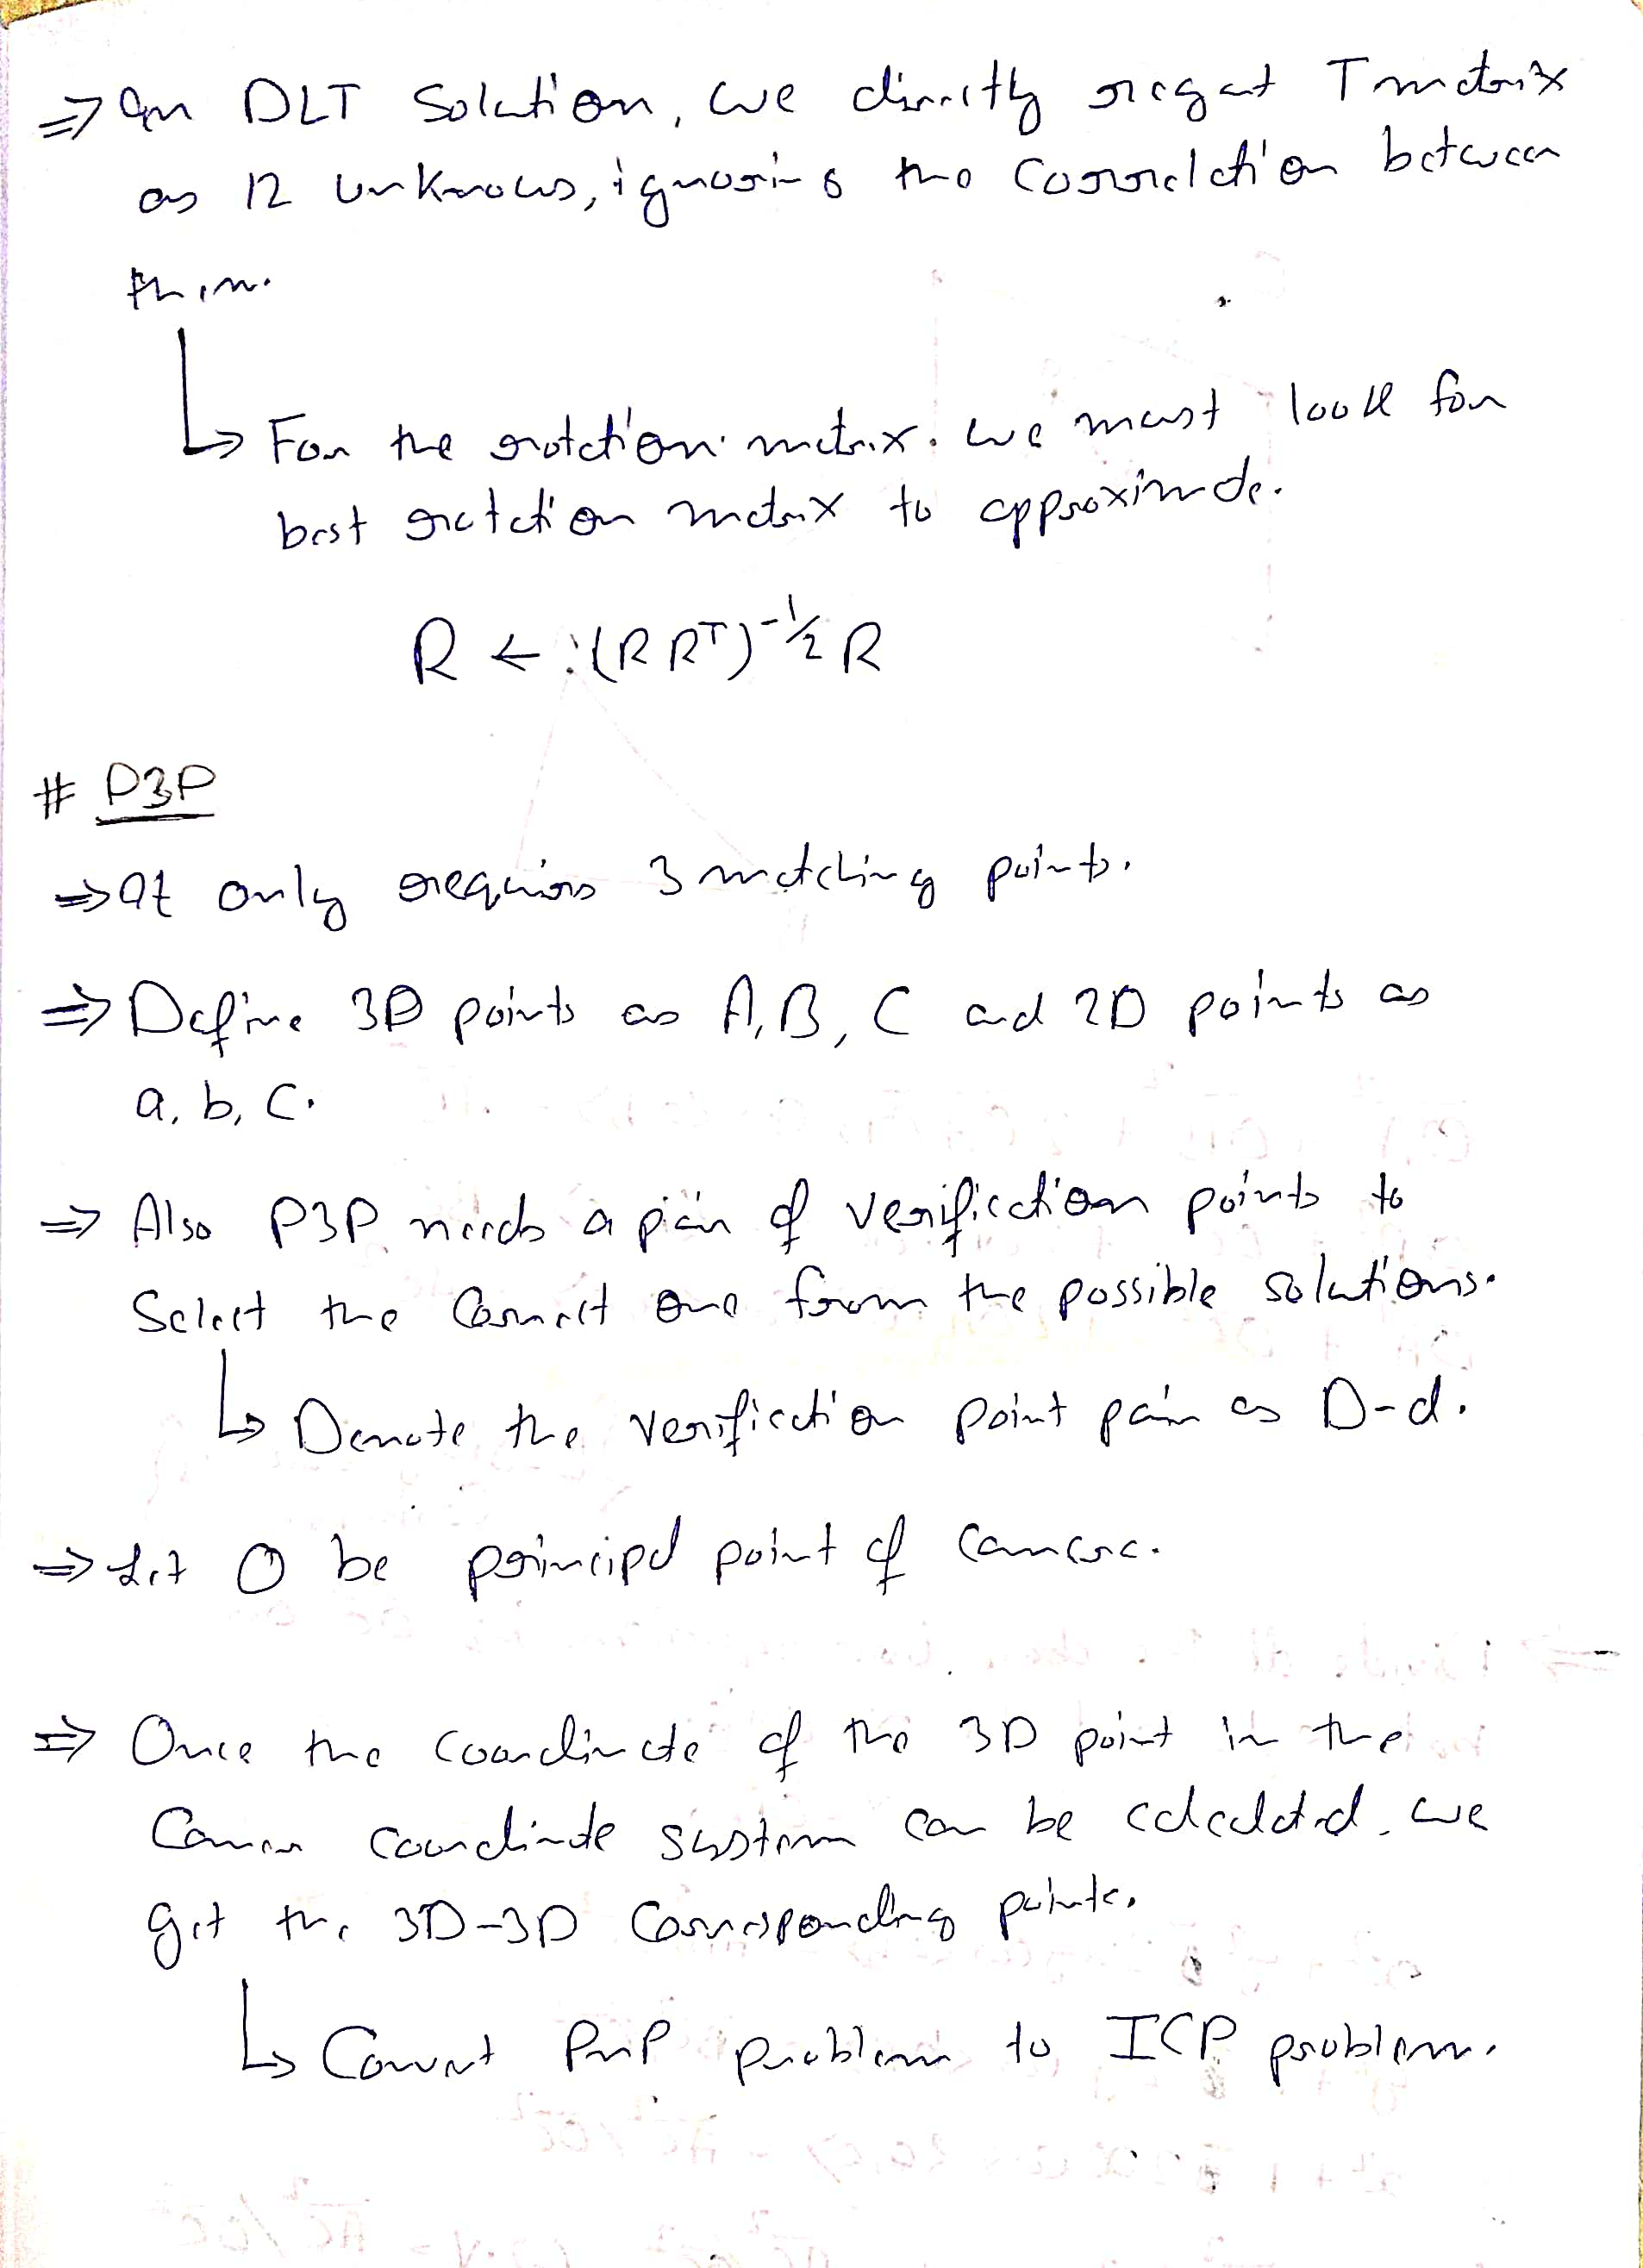 ⇒ In DLT Solution, we directly regard T matrix
as 12 unknowns, ignoring the correlation between
them.
↳ For the rotation matrix. we must look for
best rotation matrix to approximate.
R ← (RRᵀ)^-1/2 R
# P3P
⇒ It only requires 3 matching points.
⇒ Define 3D points as A, B, C and 2D points as
a, b, c.
⇒ Also P3P needs a pair of verification points to
Select the correct one from the possible solutions.
↳ Denote the verification point pair as D-d.
⇒ Let O be principal point of camera.
⇒ Once the coordinate of the 3D point in the
Camera coordinate system can be calculated, we
get the 3D-3D corresponding points.
↳ Convert PnP problem to ICP problem.